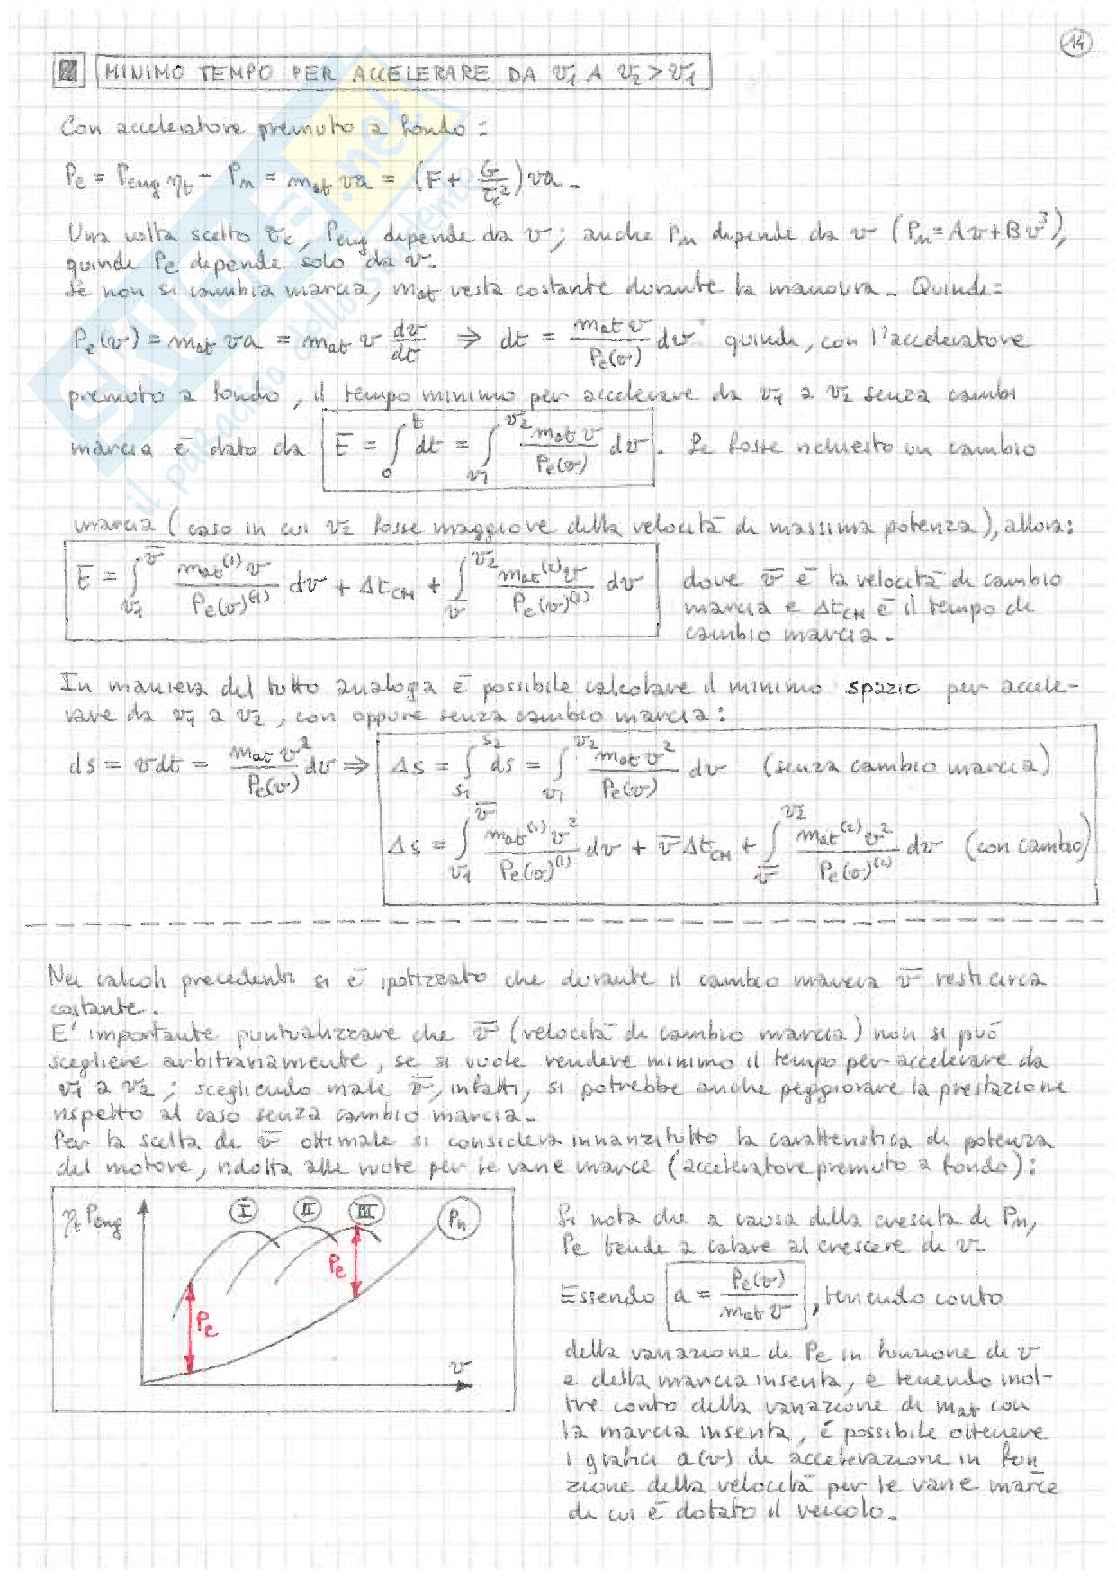 14
2 MINIMO TEMPO PER ACCELERARE DA v₁ A v₂ > v₁
Con acceleratore premuto a fondo:
Pe = Peng ηt - Pn = mat va = (F + G/τc²) va.
Una volta scelto τc, Peng dipende da v; anche Pn dipende da v (Pn = Av + Bv³),
quindi Pe dipende solo da v.
Se non si cambia marcia, mat resta costante durante la manovra. Quindi:
Pe(v) = mat va = mat v dv/dt ⇒ dt = mat v / Pe(v) dv quindi, con l'acceleratore
premuto a fondo, il tempo minimo per accelerare da v₁ a v₂ senza cambi
marcia è dato da t̄ = ∫₀ᵗ dt = ∫ᵥ₁ᵛ² mat v / Pe(v) dv. Se fosse richiesto un cambio
marcia (caso in cui v₂ fosse maggiore della velocità di massima potenza), allora:
t̄ = ∫ᵥ₁^v̄ mat⁽¹⁾v / Pe(v)⁽¹⁾ dv + ΔtCM + ∫v̄^v₂ mat⁽²⁾v / Pe(v)⁽²⁾ dv dove v̄ è la velocità di cambio
marcia e ΔtCM è il tempo di
cambio marcia.
In maniera del tutto analoga è possibile calcolare il minimo spazio per accele-
rare da v₁ a v₂, con oppure senza cambio marcia:
ds = v dt = mat v² / Pe(v) dv ⇒ Δs = ∫s₁^s₂ ds = ∫v₁^v₂ mat v² / Pe(v) dv (senza cambio marcia)
Δs = ∫v₁^v̄ mat⁽¹⁾v² / Pe(v)⁽¹⁾ dv + v̄ ΔtCM + ∫v̄^v₂ mat⁽²⁾v² / Pe(v)⁽²⁾ dv (con cambio)
Nei calcoli precedenti si è ipotizzato che durante il cambio marcia v̄ resti circa
costante.
E' importante puntualizzare che v̄ (velocità di cambio marcia) non si può
scegliere arbitrariamente, se si vuole rendere minimo il tempo per accelerare da
v₁ a v₂; scegliendo male v̄, infatti, si potrebbe anche peggiorare la prestazione
rispetto al caso senza cambio marcia.
Per la scelta di v̄ ottimale si considera innanzitutto la caratteristica di potenza
del motore, ridotta alle ruote per le varie marce (acceleratore premuto a fondo):
ηt Peng
I II III Pn
Pe
Pe
v
Si nota che a causa della crescita di Pn,
Pe tende a calare al crescere di v.
Essendo a = Pe(v) / mat v, tenendo conto
della variazione di Pe in funzione di v
e della marcia inserita, e tenendo inol-
tre conto della variazione di mat con
la marcia inserita, è possibile ottenere
i grafici a(v) di accelerazione in fun
zione della velocità per le varie marce
di cui è dotato il veicolo.
SKUOLA.net
il paradiso dello studente